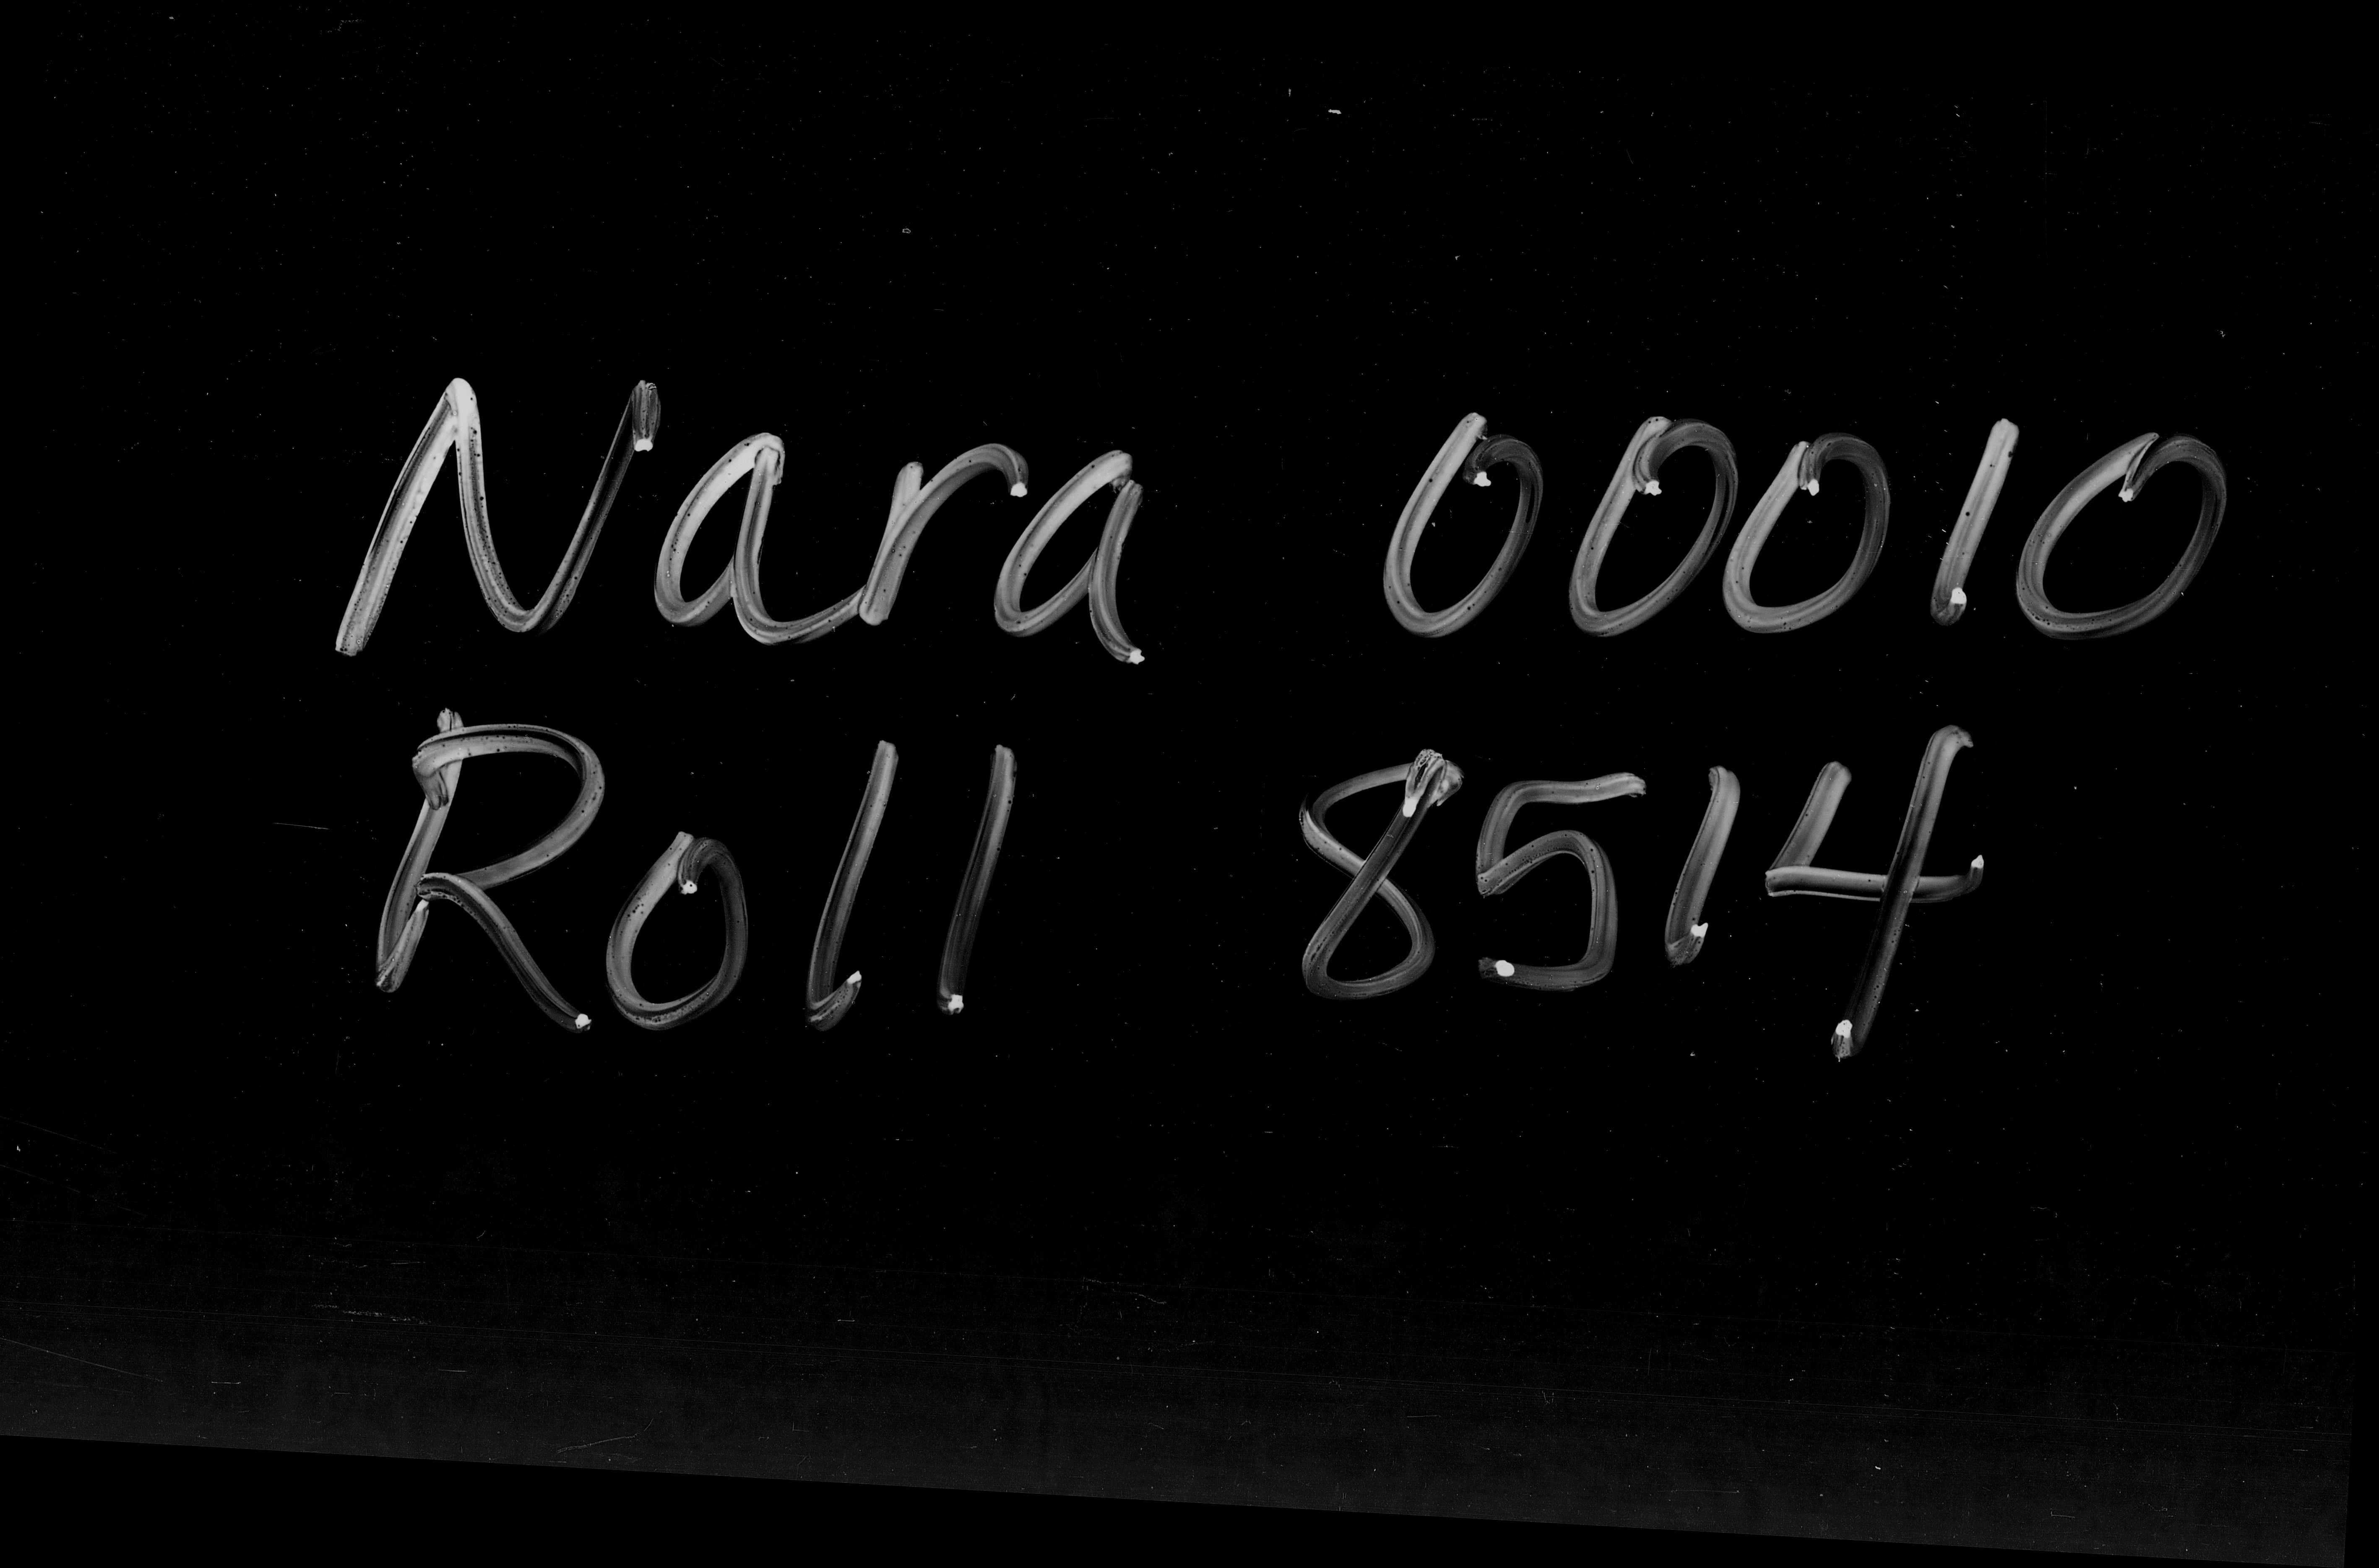 Nara 00010
Roll 8514